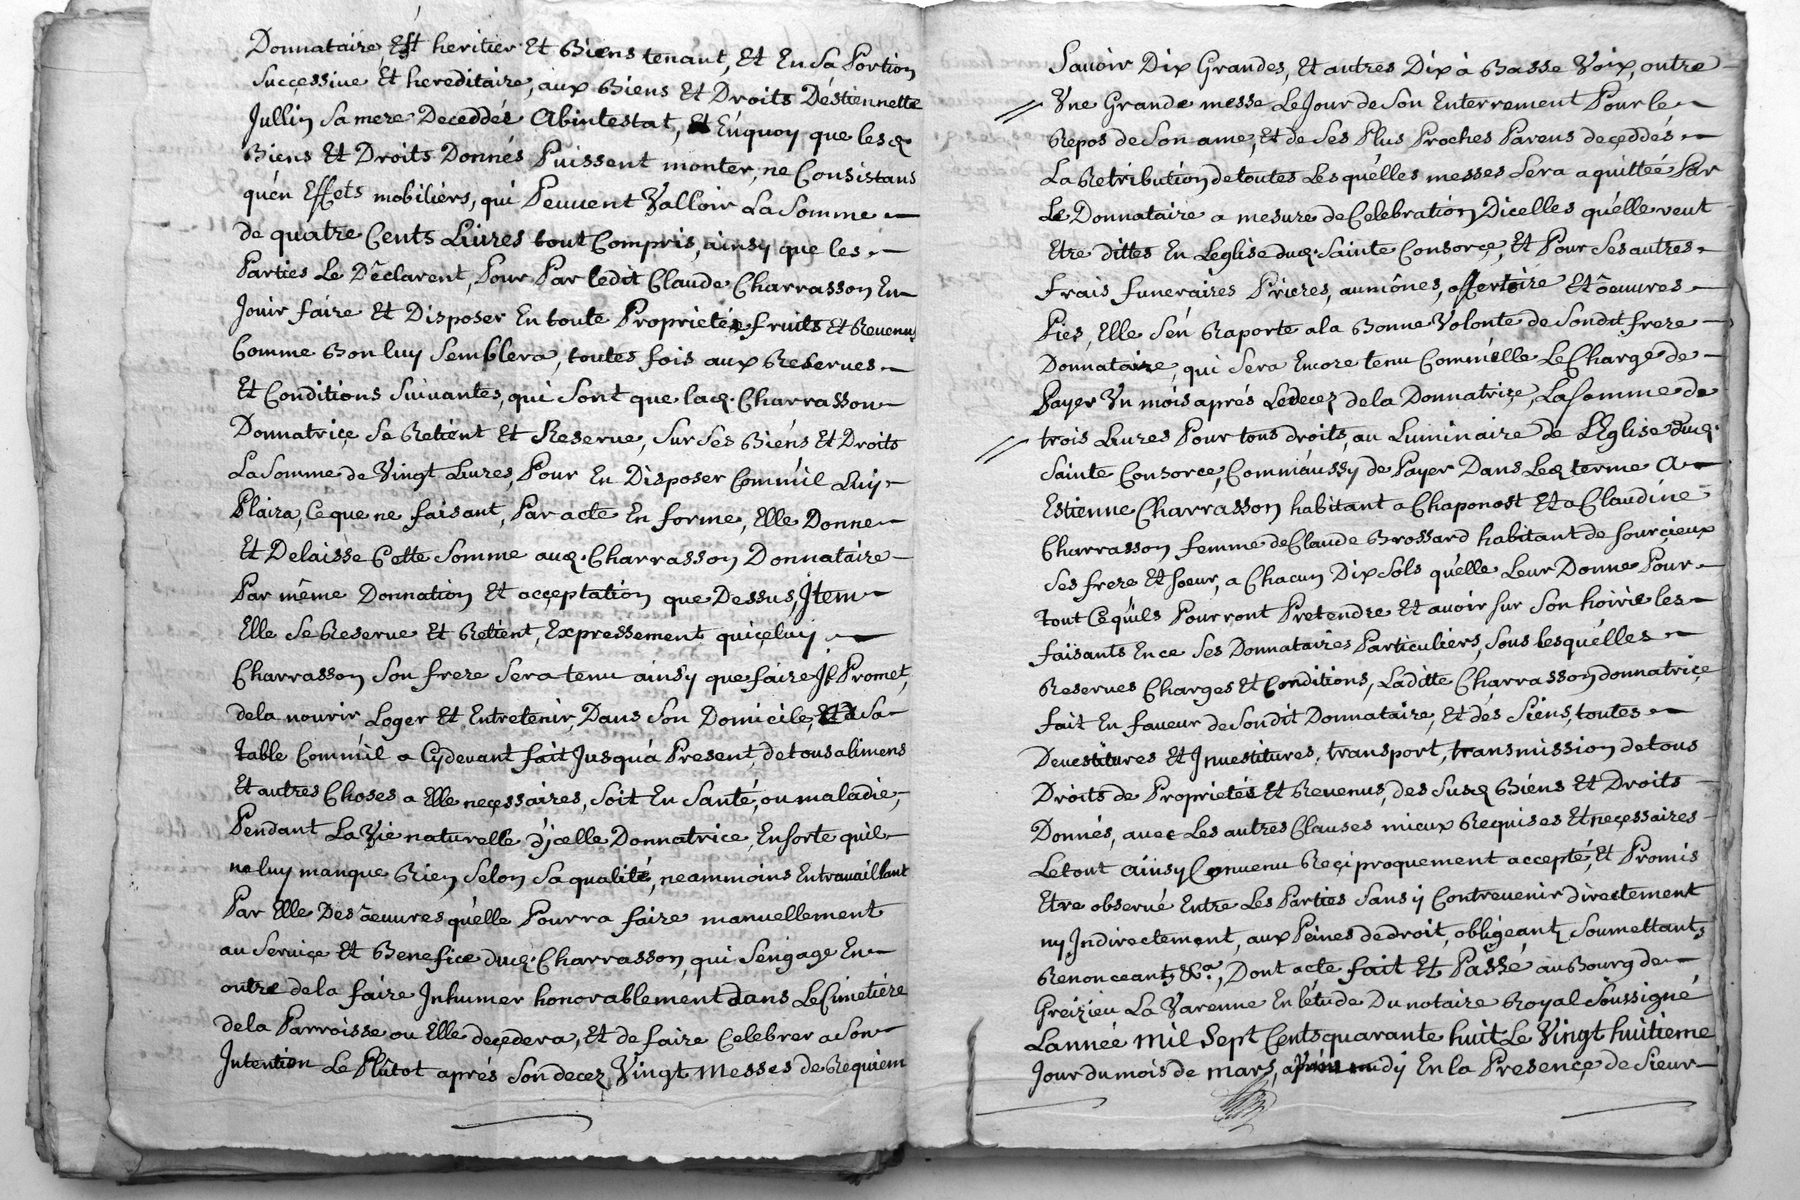 Donnataire, Est heritier Et Biens tenant, Et En Sa Portion
Successive Et hereditaire, aux Biens Et Droits Déstiennette
Jullin Sa mere Deceddée Abintestat, Et Enquoy que lesd.
Biens Et Droits Donnés Puissent monter, ne Consistans
qu'en Effets mobiliers, qui Peuvent Valloir La Somme
de quatre Cents Livres tout Compris, ainsy que les
Parties Le Déclarent, Pour Par ledit Claude Charrasson En
Jouir faire Et Disposer En toute Proprietés fruits Et Revenus
Comme Bon luy Semblera, toutes fois aux Reserves
Et Conditions Suivantes, qui Sont que lad. Charrasson
Donnatriçe Se Retient Et Reserve, Sur Ses Biens Et Droits
La Somme de Vingt Livres, Pour En Disposer Comm'il Luy
Plaira, Ce que ne faisant, Par acte En forme, Elle Donne
Et Delaisse Cette Somme aud. Charrasson Donnataire
Par même Donnation Et acçeptation que Dessus, Item
Elle Se Reserve Et Retient, Expressement quiçeluy
Charrasson Son frere Sera tenu ainsy que faire Il Promet,
dela nourir Loger Et Entretenir, Dans Son Domicile, Et a Sa
table Comm'il a Cydevant fait Jusqu'a Present, de tous alimens
Et autres Choses a Elle neçessaires, Soit En Santé, ou maladie,
Pendant La Vie naturelle d'jcelle Donnatrice, Ensorte qu'il
ne luy manque Rien Selon Sa qualité, neammoins En travaillant
Par Elle Des œuvres qu'elle Pourra faire manuellement
au Serviçe Et Benefice dud. Charrasson, qui S'engage En
outre de la faire Inhumer honorablement dans Le Cimetiére
dela Parroisse ou Elle deçedera, Et de faire Celebrer a Son
Intention Le Plûtot aprés Son decez Vingt Messes de Requiem
Savoir Dix Grandes, Et autres Dix à Basse Voix, outre
Une Grande messe Le Jour de Son Enterrement Pour le
Repos de Son ame, Et de Ses Plus Proches Parens deçeddés
La Retribution de toutes Les quelles messes Sera aquittée Par
Le Donnataire a mesure de Celebration Dicelles qu'elle veut
Etre dittes En Leglise dud. Sainte Consorçe, Et Pour Ses autres
frais funeraires Prieres, aumônes, offertoire Et œuvres
Pies, Elle S'en Raporte a la Bonne Volonté de Sondit frere
Donnataire, qui Sera Encore tenu Comm'elle Le Charge de
Payer Un mois aprés Le decez de la Donnatriçe, La Somme de
trois Livres Pour tous droits, au Luminaire de L'Eglise dud.
Sainte Consorce, Comm'aussy de Payer Dans Led. terme A
Estienne Charrasson habitant a Chaponost Et a Claudine
Charrasson femme de Claude Brossard habitant de Sourçieux
Ses frere Et Soeur, a Chacun Dix Sols qu'elle Leur Donne Pour
tout Ce qu'ils Pourront Pretendre Et avoir Sur Son hoirie les
faisants En ce Ses Donnataires Particuliers, Sous lesquélles
Reserves Charges Et Conditions, Laditte Charrasson donnatriçe
fait En faveur de Sondit Donnataire, Et dés Siens, toutes
Devestitures Et Investitures, transport, transmission de tous
Droits de Proprietés Et Revenus, des Susd. Biens Et Droits
Donnés, avec Les autres Clauses mieux Requises Et neçessaires
Le tout ainsy Convenu Reçiproquement accepté, Et Promis
Etre observé Entre Les Parties Sans y Contrevenir directement
ny Indirectement, aux Peines de droit, obligeant, Soumettant,
Renonceant, &a., Dont acte fait Et Passé au Bourg de
Greizieu La Varenne En l'étude Du notaire Royal Soussigné
L'année Mil Sept Cents quarante huit Le Vingt huitieme
Jour du mois de mars, Midy En la Presençe de Sieur